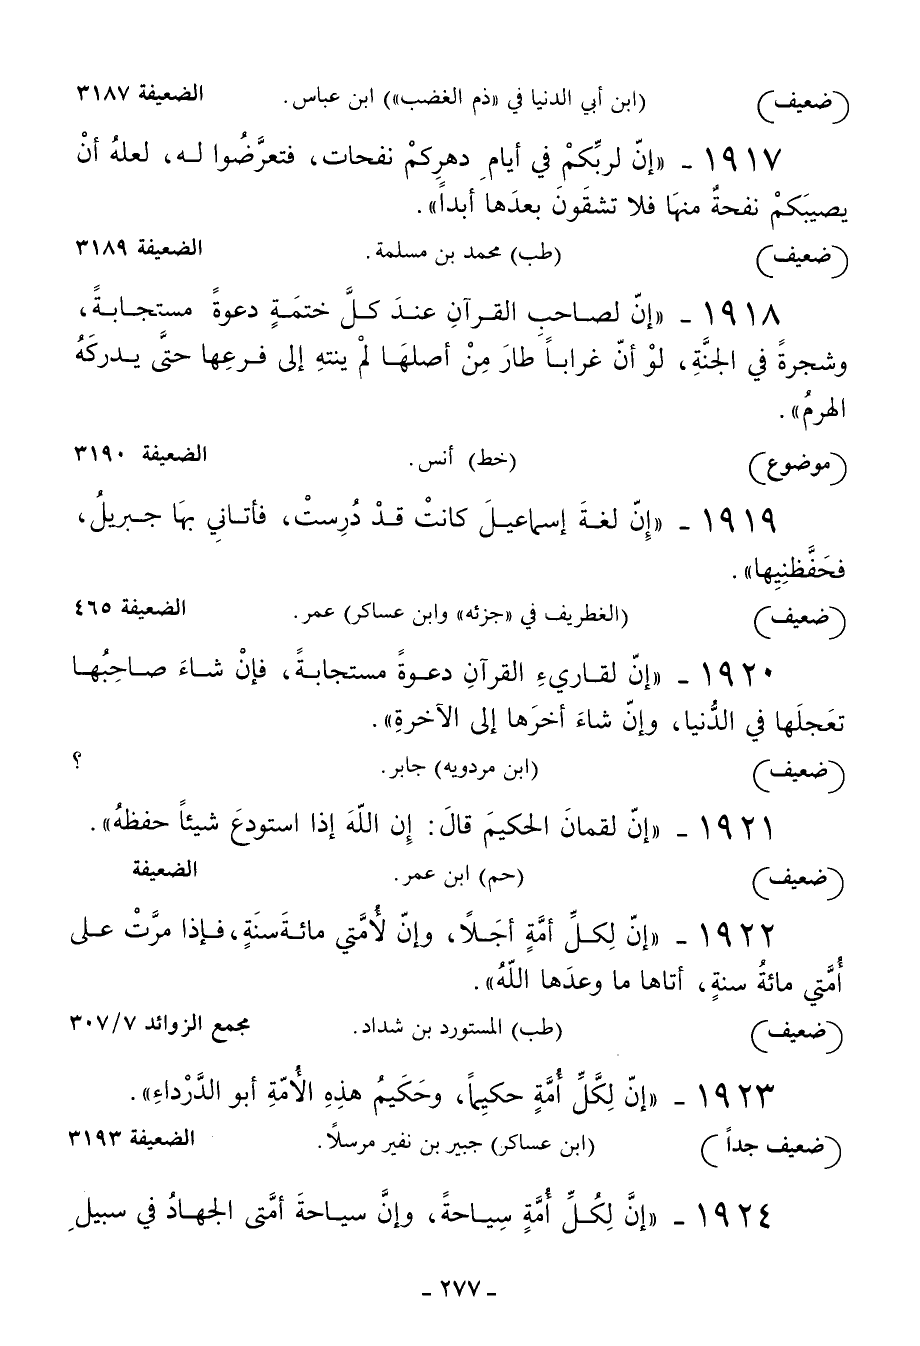 (ضعيف) (ابن أبي الدنيا في «ذم الغضب») ابن عباس. الضعيفة ٣١٨٧
١٩١٧ - «إنّ لربِّكمْ في أيامِ دهرِكمْ نفحات، فتعرَّضُوا له، لعلهُ أنْ
يصيبَكمْ نفحةٌ منهَا فلا تشقَونَ بعدَها أبداً».
(ضعيف) (طب) محمد بن مسلمة. الضعيفة ٣١٨٩
١٩١٨ - «إنّ لصاحبِ القرآنِ عندَ كلَّ ختمَةٍ دعوةً مستجابةً،
وشجرةً في الجنَّةِ، لوْ أنّ غراباً طارَ مِنْ أصلهَا لمْ ينتهِ إلى فرعِها حتىَّ يدركَهُ
الهرمُ».
(موضوع) (خط) أنس. الضعيفة ٣١٩٠
١٩١٩ - «إِنّ لغةَ إسماعيلَ كانتْ قدْ دُرِستْ، فأتاني بهَا جبريلُ،
فحَفَّظنِيها».
(ضعيف) (الغطريف في «جزئه» وابن عساكر) عمر. الضعيفة ٤٦٥
١٩٢٠ - «إنّ لقاريءِ القرآنِ دعوةً مستجابةً، فإنْ شاءَ صاحِبُها
تعَجلَها في الدُّنيا، وإنّ شاءَ أخرَها إلى الآخرةِ».
(ضعيف) (ابن مردويه) جابر. ؟
١٩٢١ - «إنّ لقمانَ الحكيمَ قالَ: إِن اللّهَ إذا استودعَ شيئاً حفظهُ».
(ضعيف) (حم) ابن عمر. الضعيفة
١٩٢٢ - «إنّ لِكلِّ أمَّةٍ أجَلاً، وإنّ لأُمَّتي مائةَ سنَةٍ، فإذا مرَّتْ على
أُمَّتي مائةُ سنةٍ، أتاها ما وعدَها اللّهُ».
(ضعيف) (طب) المستورد بن شداد. مجمع الزوائد ٣٠٧/٧
١٩٢٣ - «إنّ لِكَّلِّ أُمَّةٍ حكيماً، وحَكَيمُ هذِهِ الأُمّةِ أبو الدَّرْداءِ».
(ضعيف جداً) (ابن عساكر) جبير بن نفير مرسلاً. الضعيفة ٣١٩٣
١٩٢٤ - «إنَّ لِكُلِّ أُمَّةٍ سِياحةً، وإنَّ سياحةَ أمَّتى الجهادُ في سبيلِ
- ٢٧٧ -